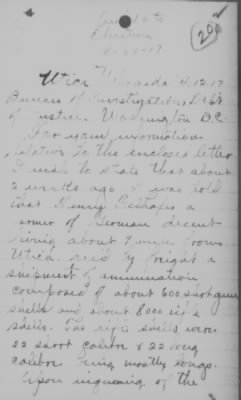 200
4-24-17
Utica Nebraska 4-12-17
Bureau of Investigation, Dept
of Justice, Washington D.C.
For your information
relative to the enclosed letter
I wish to state that about
2 weeks ago I was told
that Henry
farmer of German decent
living about 9 miles from
Utica rec'd by freight a
shipment of ammunition
composed of about 600 shotgun
shells and about 8000 rifle
shells. The rifle shells were
22 short calibre & 22 long
calibre being mostly longs.
Upon inquiring of the